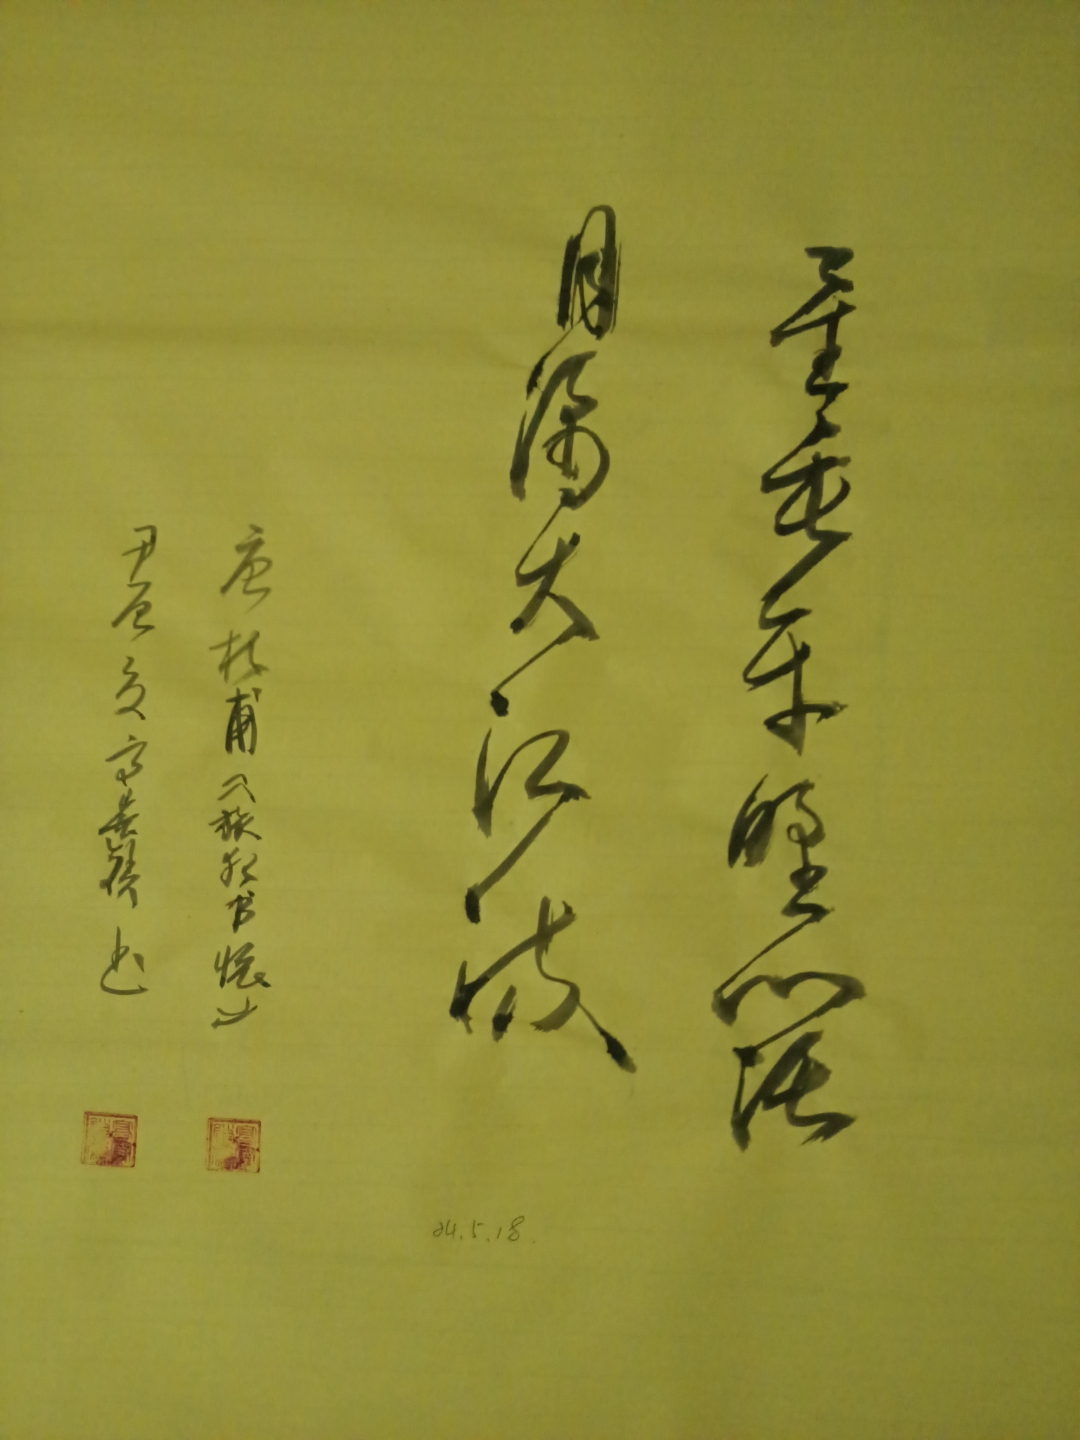 星垂平野阔
月涌大江流
唐杜甫旅夜书怀
甲辰夏高书
24.5.18.